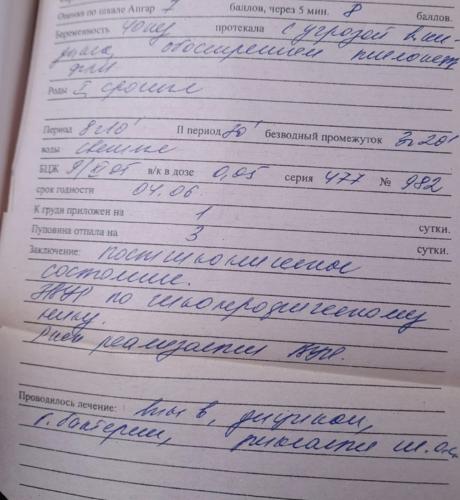 Оценка по шкале Апгар 7 баллов, через 5 мин. 8 баллов.
Беременность 40 нед протекала с угрозой выки-
дыша, обострением пиелонеф
рита
Роды I, срочные
I период 8ч10' II период 20' безводный промежуток 3ч20'
воды светлые
БЦЖ 9/XI 05 в/к в дозе 0,05 серия 477 № 982
срок годности 04.06
К груди приложен на 1 сутки.
Пуповина отпала на 3 сутки.
Заключение: постгипоксическое
состояние.
ЗВУР по гипотрофическому
типу.
Риск реализации ВУИ.
Проводилось лечение: вит в, дицинон,
б. бактерии,